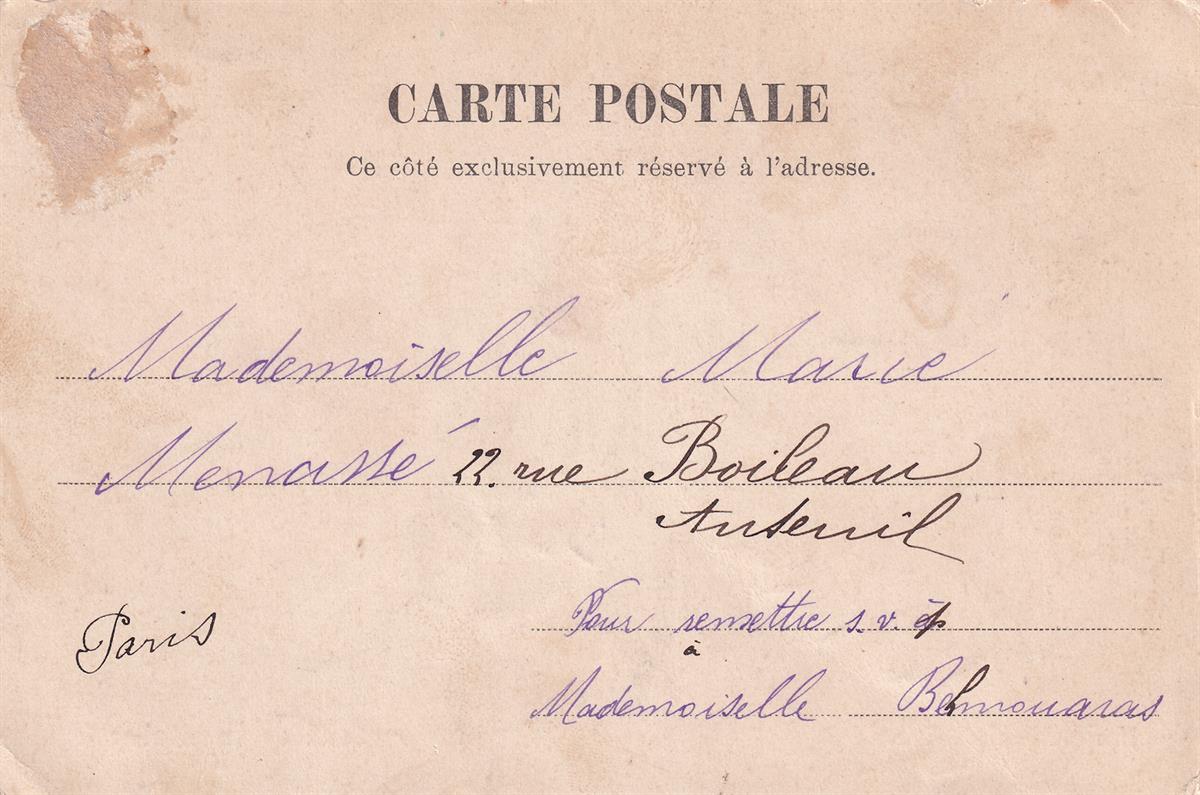 CARTE POSTALE
Ce côté exclusivement réservé à l'adresse.
Mademoiselle Marie
Menassé 22. rue Boileau
Auteuil
Paris
Pour remettre s. v. p
à
Mademoiselle Belmouaras